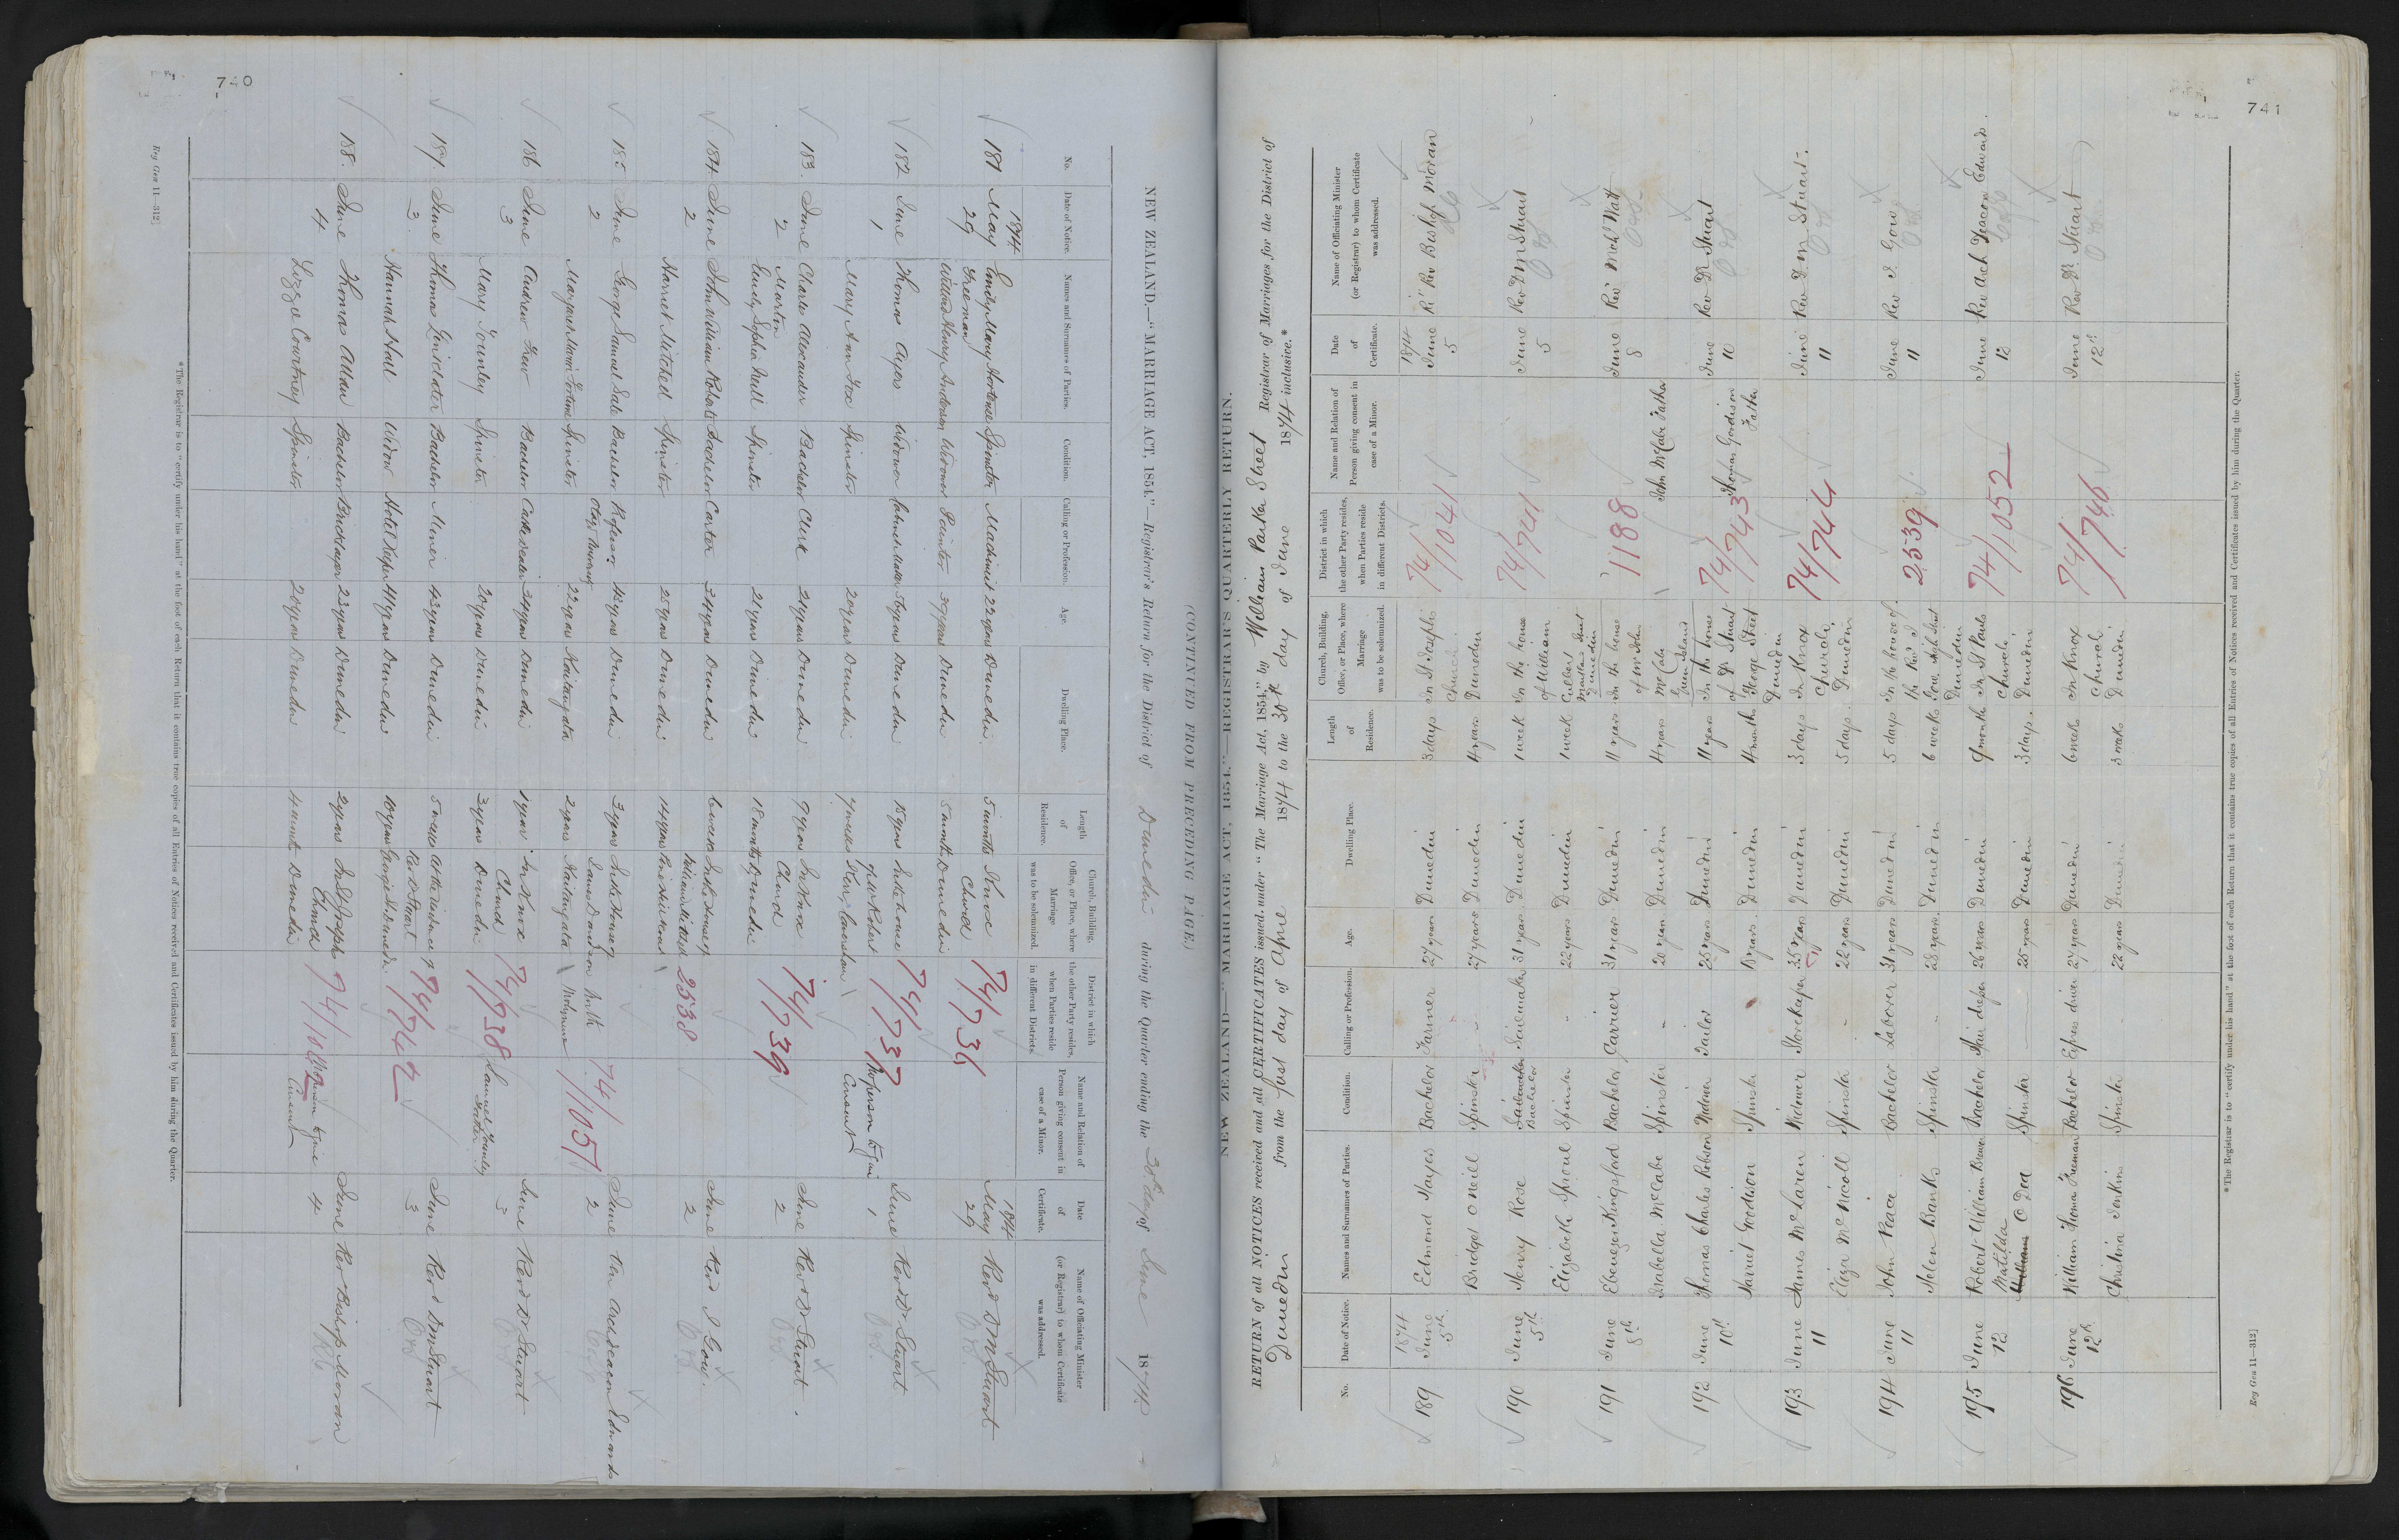 740
NEW ZEALAND.—"MARRIAGE ACT, 1854."—Registrar's Return for the District of Dunedin during the Quarter ending the 30th day of June 1874.
(CONTINUED FROM PRECEDING PAGE.)
No. Date of Notice. Names and Surnames of Parties. Condition. Calling or Profession. Age. Dwelling Place. Length of Residence. Church, Building, Office, or Place, where Marriage was to be solemnized. District in which the other Party resides, when Parties reside in different Districts. Name and Relation of Person giving consent in case of a Minor. Date of Certificate. Name of Officiating Minister (or Registrar) to whom Certificate was addressed.
1874 1874
181 May 29 Emily Mary Hortense Freeman Spinster Machinist 22 years Dunedin 5 months Knox Church 74/736 May 29 Revd D M Stuart
William Henry Anderson Widower Painter 39 years Dunedin 5 months Dunedin
182 June 1 Thomas Ayers Widower 56 years Dunedin 15 years In the house 74/737 June 1 Revd Dr Stuart
Mary Ann Fox Spinster 20 years Dunedin
183. June 2 Charles Alexander Martin Bachelor Clerk 24 years Dunedin 9 years In Knox Church 74/739 June 2 Revd Dr Stuart.
Emily Sophia Nell Spinster 21 years Dunedin 18 months Dunedin
184. June 2 John William Roberts Bachelor Carter 34 years Dunedin 2538 June 2 Revd J Gow.
Harriet Mitchell Spinster 25 years Dunedin 14 years
185 June 2 George Samuel Sale Bachelor Professor Otago University 42 years Dunedin 3 years 74/1051 June 2 Ven Archdeacon Edwards
Margaret Maria Fortune Spinster 22 years Kaitangata 2 years Kaitangata Molyneux
186 June 3 Andrew Bachelor Cattle dealer 34 years Dunedin 1 year In Knox Church 74/738 June 3 Revd Dr Stuart
Mary Townley Spinster 20 years Dunedin 3 years Dunedin Samuel Townley father
187. June 3 Thomas Bachelor Miner 43 years Dunedin 5 At the residence of Rev D Stuart 74/742 June 3 Revd D M Stuart
Hannah Hall Widow Hotel Keeper 41 years Dunedin 10 years George Street Dunedin
188. June 4 Thomas Allan Bachelor Bricklayer 23 years Dunedin 2 years In St Josephs Church 74/ June 4 Rev Bishop Moran
Lizzie Courtney Spinster 20 years Dunedin 4 months Dunedin
*The Registrar is to "certify under his hand" at the foot of each Return that it contains true copies of all Entries of Notices received and Certificates issued by him during the Quarter.
Reg Gen 11—312]
741
NEW ZEALAND—"MARRIAGE ACT, 1854."—REGISTRAR'S QUARTERLY RETURN.
RETURN of all NOTICES received and all CERTIFICATES issued, under "The Marriage Act, 1854," by William Parker Street Registrar of Marriages for the District of
Dunedin from the first day of April 1874 to the 30th day of June 1874 inclusive.*
No. Date of Notice. Names and Surnames of Parties. Condition. Calling or Profession. Age. Dwelling Place. Length of Residence. Church, Building, Office, or Place, where Marriage was to be solemnized. District in which the other Party resides, when Parties reside in different Districts. Name and Relation of Person giving consent in case of a Minor. Date of Certificate. Name of Officiating Minister (or Registrar) to whom Certificate was addressed.
1874 1874
189 June 5th Edmond Hayes Bachelor Farmer 27 years Dunedin 3 days In St Josephs Church 74/1041 June 5 Rt Rev Bishop Moran
Bridget O Neill Spinster - 27 years Dunedin 4 years Dunedin
190 June 5th Henry Rose Bachelor Sailmaker 31 years Dunedin 1 week In the house of William 74/741 June 5 Rev D M Stuart
Elizabeth Sproul Spinster - 22 years Dunedin 1 week Culbert Maitland Street Dunedin
191 June 8th Ebenezer Kingsford Bachelor Carrier 31 years Dunedin 11 years In the house of Mr John 1188 June 8 Rev Mch Watt
Isabella McCabe Spinster - 20 years Dunedin 4 years McCabe Green Island John McCabe Father
192 June 10th Thomas Charles Robson Widower Tailor 25 years Dunedin 11 years In the house of Dr Stuart 74/743 June 10 Rev Dr Stuart
Harriet Goodison Spinster 18 years. Dunedin 4 months George Street Dunedin Thomas Goodison Father
193 June 11 James McLaren Widower Storekeeper 35 years Dunedin 3 days In Knox Church, 74/744 June 11 Rev D M Stuart.
Eliza McNicoll Spinster - 22 years Dunedin 5 days. Dunedin
194 June 11 John Peace Bachelor Laborer 31 years Dunedin 5 days In the house of the Rev J 2539 June 11 Rev J. Gow
Helen Banks Spinster - 28 years. Dunedin 6 weeks Gow High Street Dunedin
195 June 12 Robert William Brewer Bachelor Hair dresser 26 years Dunedin 9 months In St Pauls Church. 74/1052 June 12 Rev Arch Deacon Edwards.
Matilda O Dea Spinster 25 years Dunedin 3 days. Dunedin
196 June 12th William Thomas Freeman Bachelor Express driver 27 years Dunedin 6 weeks In Knox Church. 74/746 June 12th Rev Dr Stuart
Christina Jenkins Spinster - 22 years Dunedin 3 weeks Dunedin
*The Registrar is to "certify under his hand" at the foot of each Return that it contains true copies of all Entries of Notices received and Certificates issued by him during the Quarter.
Reg Gen 11—312]